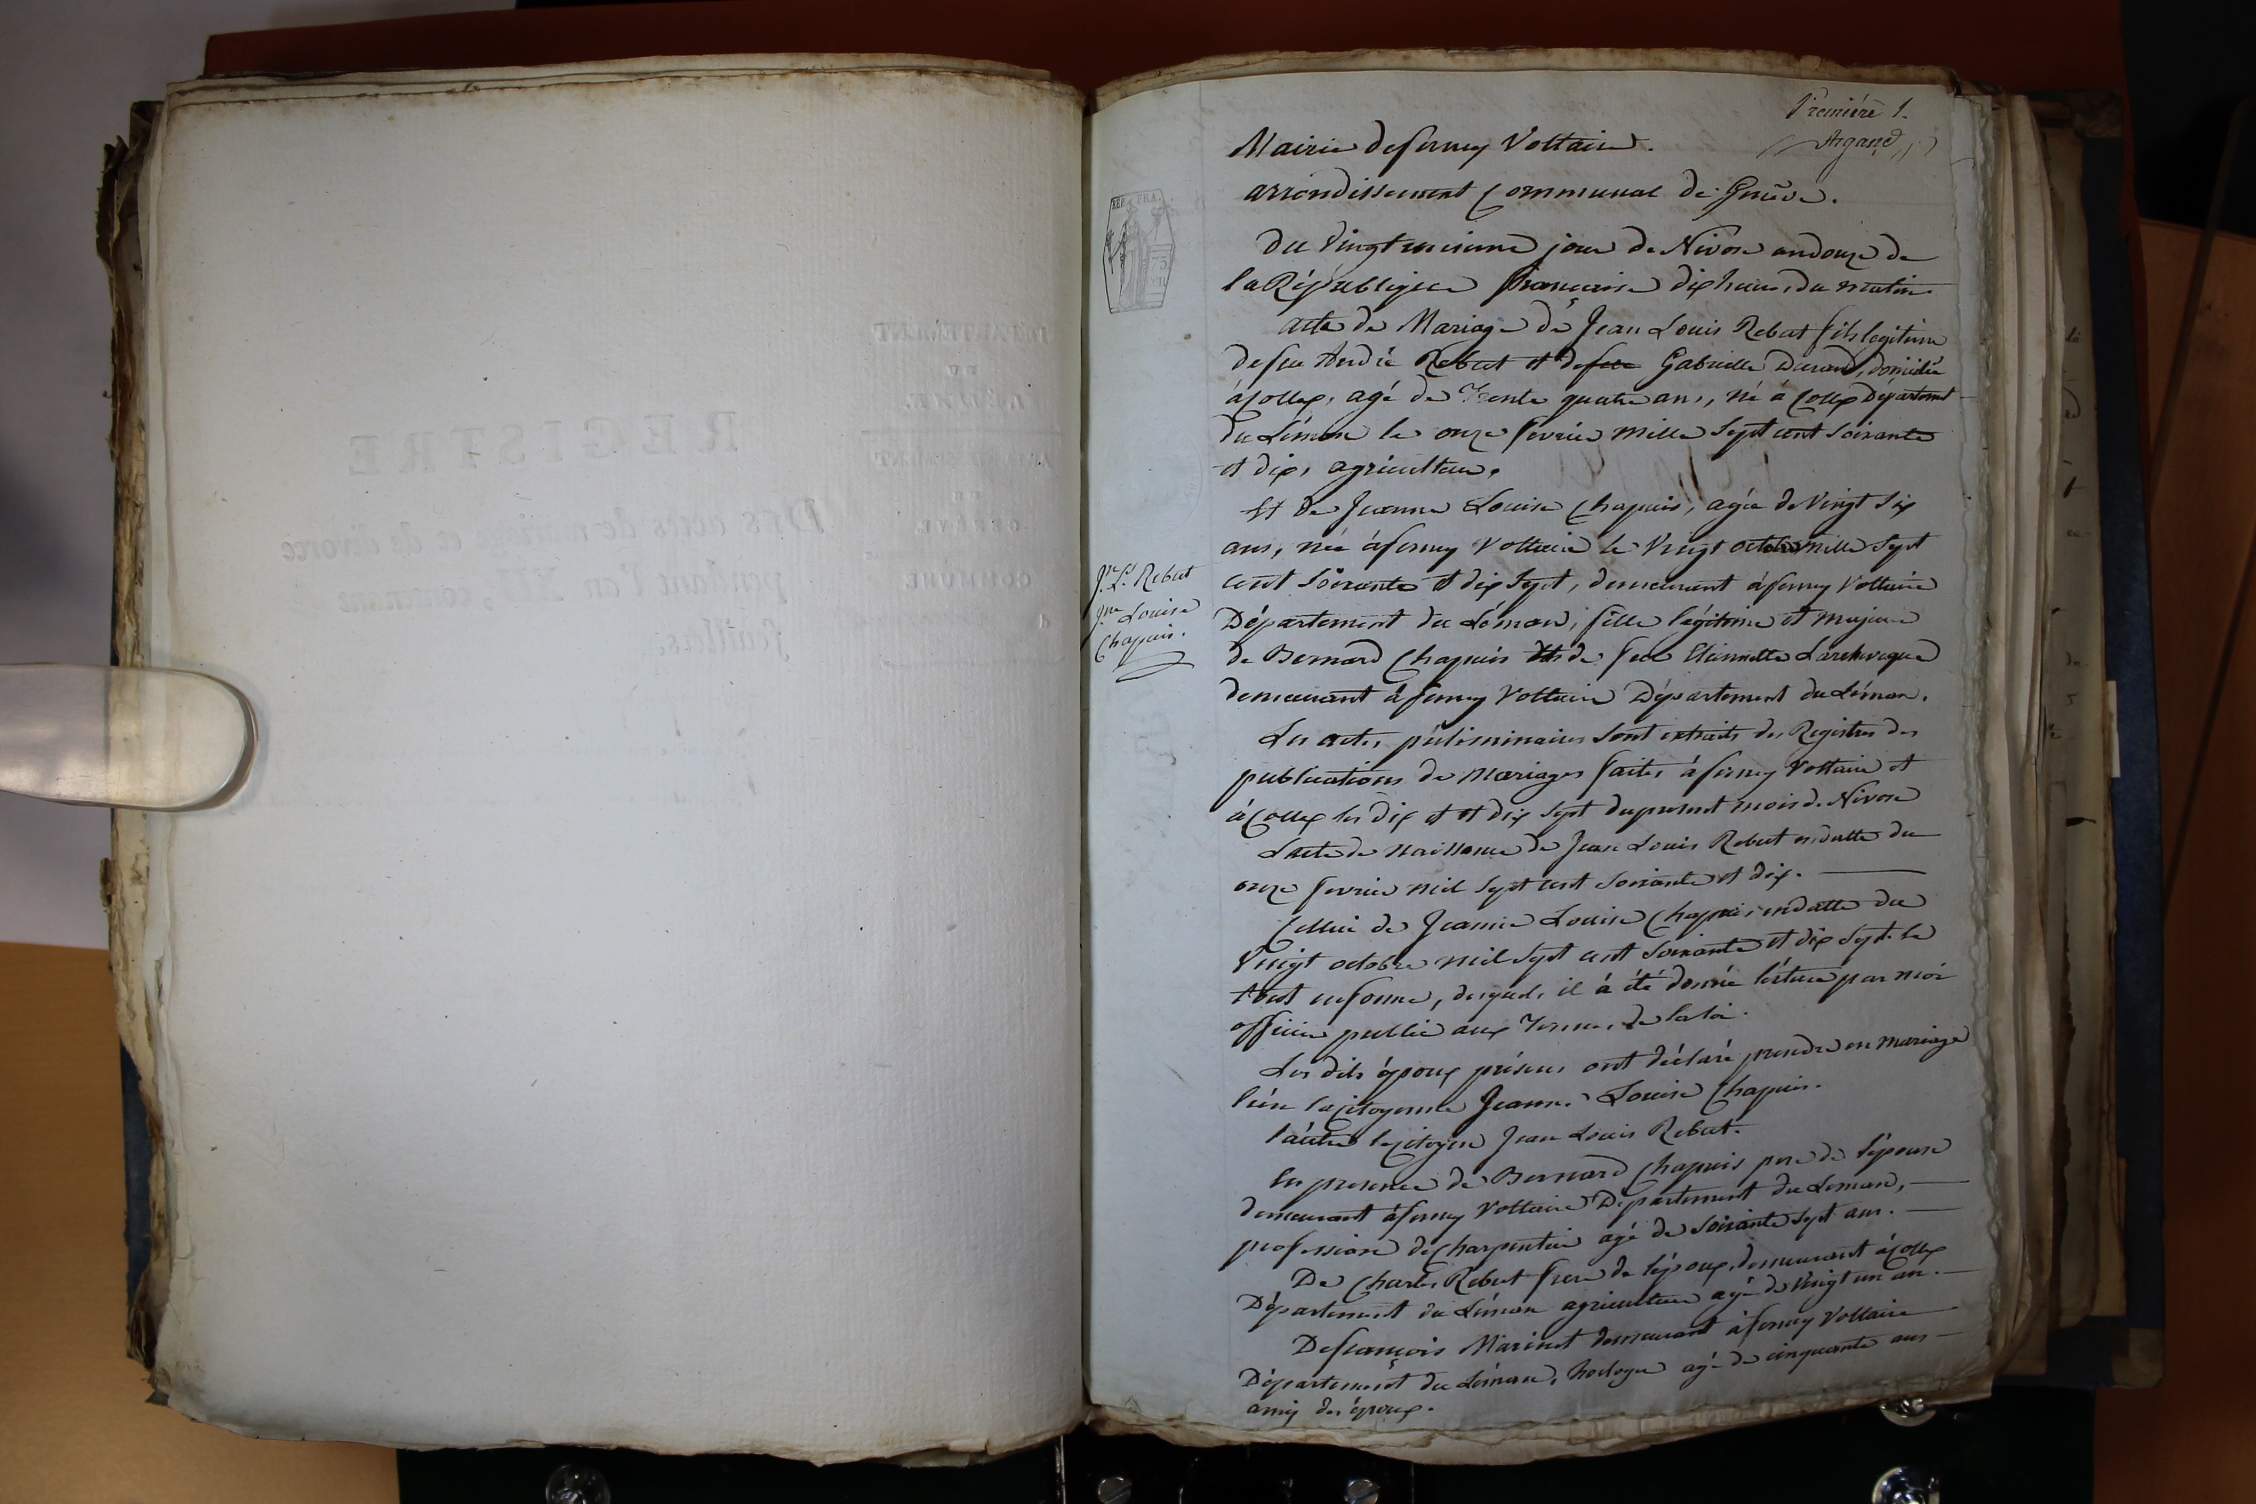 Premiére 1.
Argand
Mairie de ferney Voltaire.
arrondissement Communal de Genêve.
REP. FRA.
du Vingt unieme jour de Nivose an douze de
la République françoise dix heures du matin
acte de Mariage de Jean Louis Rebut fils legitime
de feu André Rebut et de feue Gabrielle Durand, domicilié
à Collex, agé de Trente quatre ans, né à Collex Département
du Léman le onze fevrier mille Sept cent Soixante
et dix, agriculteur.
Et de Jeanne Louise Chapuis, agée de Vingt Six
ans, née à ferney Voltaire le Vingt octobre mille Sept
cent Soixante et dix Sept, demeurant à ferney Voltaire
Département du Léman, fille légitime et majeure
de Bernard Chapuis et de feue Etiennette Larcheveque
demeurant à ferney Voltaire Département du Léman.
J.n L.s Rebut
J.ne Louise
Chapuis.
Les actes préliminaires Sont extraits des Registres des
publications de Mariages faites à ferney Voltaire et
à Collex les dix et et dix Sept du present mois de Nivose
L'acte de naissance de Jean Louis Rebut en datte du
onze fevrier mil Sept cent Soixante et dix.
Cellui de Jeanne Louise Chapuis en datte du
Vingt octobre mil Sept cent Soixante et dix Sept. le
tout en forme, desquels il à été donné lécture par moi
officier public aux Termes de la loi.
Les dits époux présens ont déclaré prendre en mariage
l'un la Citoyenne Jeanne Louise Chapuis.
l'autre le Citoyen Jean Louis Rebut.
En presence de Bernard Chapuis pere de l'épouse
demeurant à ferney Voltaire Département du Leman,
profession de Charpentier agé de Soixante Sept ans.
De Charles Rebut frere de l'époux, demeurant à Collex
Département du Léman agriculteur agé de Vingt un an.
De françois Marinet demeurant à ferney Voltaire
Département du Léman, horloger agé de cinquante ans
amis des époux.
REGISTRE
Des actes de mariage et de divorce
pendant l'an XII, contenant
feuilles.
DÉPARTEMENT
DU
LÉMAN.
COMMUNE